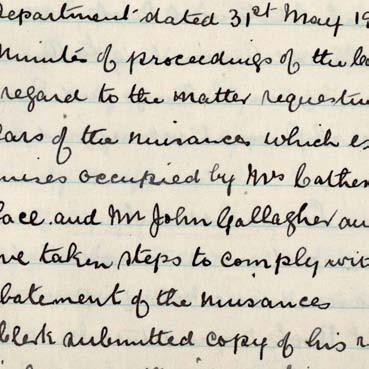 Department dated 31st May 19
Minutes of proceedings of the
regard to the matter
lars of the nuisances which
mises occupied by Mrs Cather
lace and Mr John Gallagher
ve taken steps to comply wit
batement of the nuisances
Clerk submitted copy of his